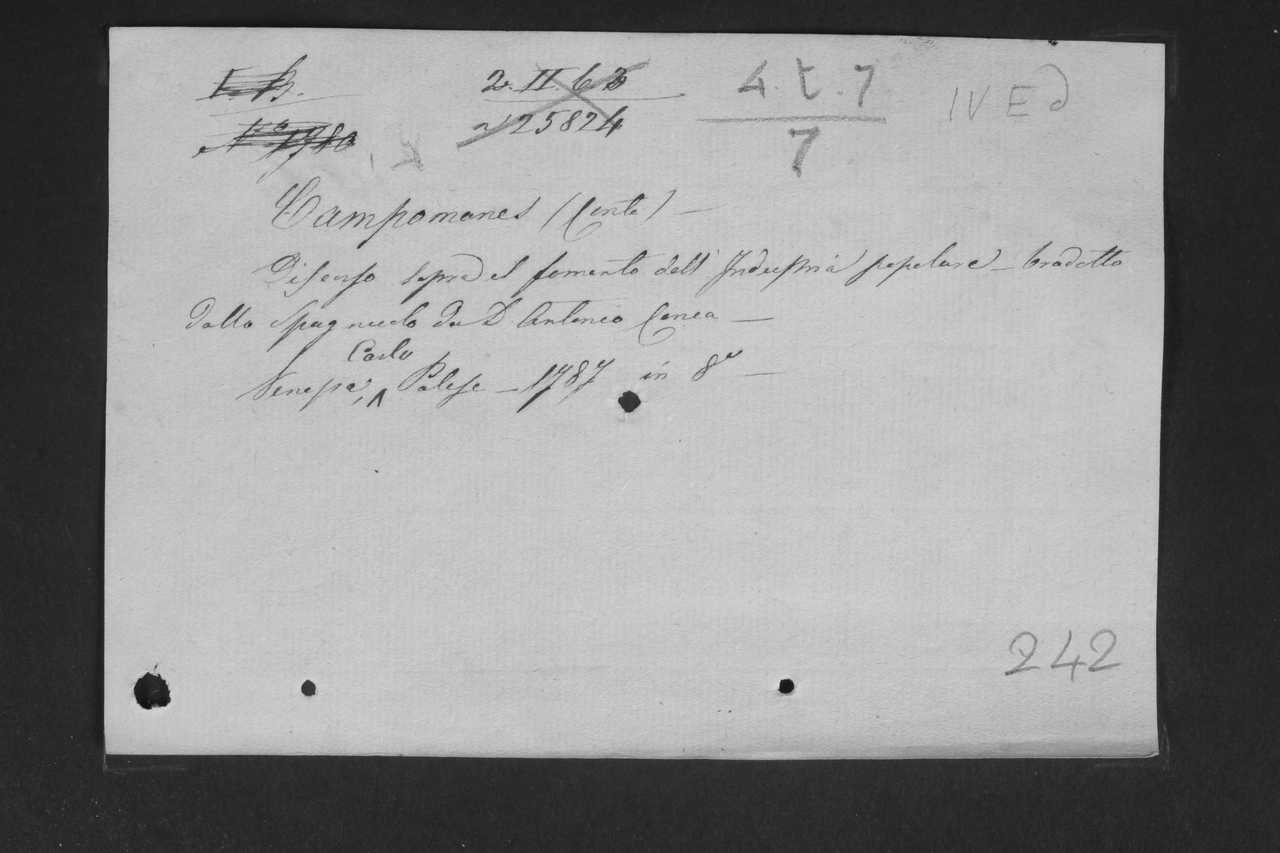 2. II. 63
4. t. 7
IV E d
N° 1780
25824
7
Campomanes (Conte) —
Discorso sopra el fomento dell' Industria popolare — tradotto
dallo Spagnuolo da D Antonio Conca —
Carlo
Venezia, ^ Palese — 1787 in 8° —
242